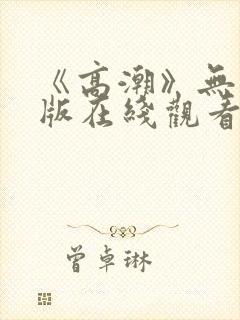 《高潮》無
版在綫觀看
曾卓琳